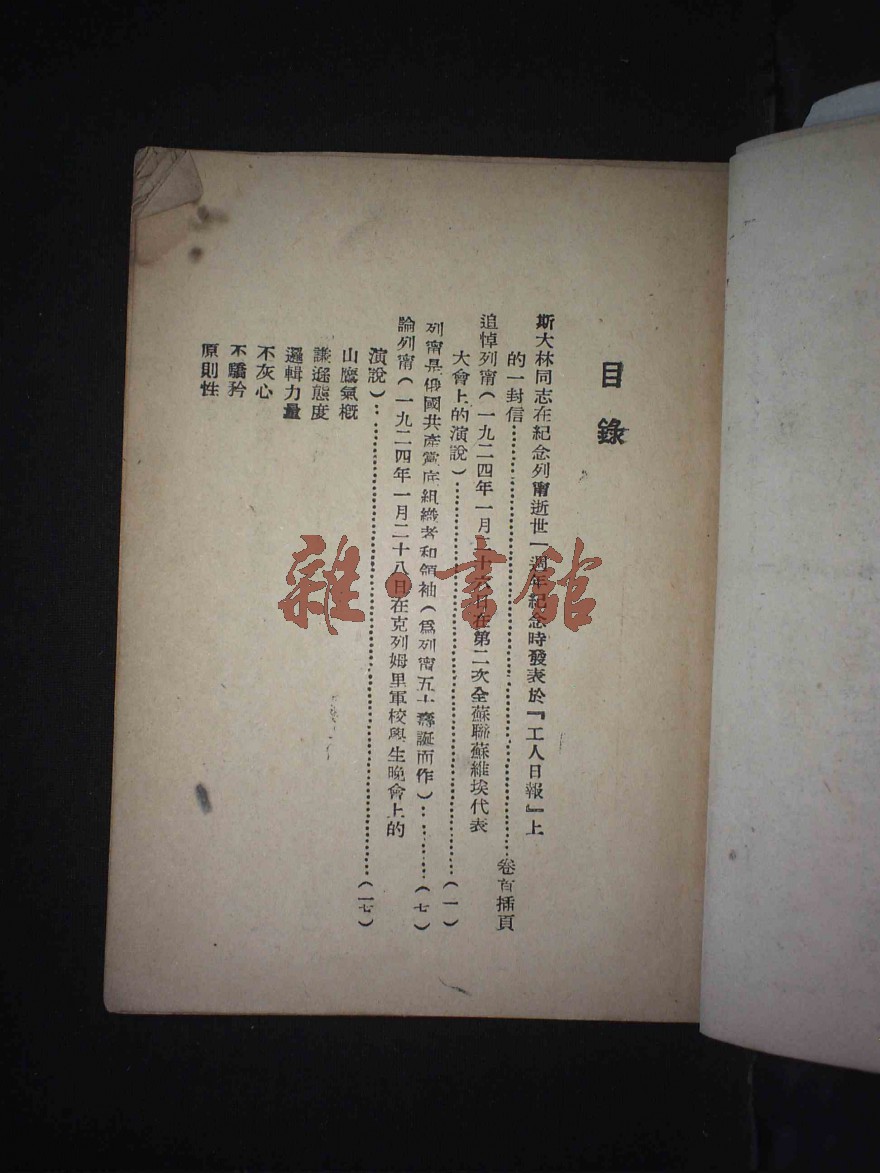 目錄
斯大林同志在紀念列甯逝世一週年紀念時發表於『工人日報』上
的一封信……卷首插頁
追悼列甯(一九二四年一月二十六日在第二次全蘇聯蘇維埃代表
大會上的演說)……(一)
列甯是俄國共產黨底組織者和領袖(爲列甯五十壽誕而作)……(七)
論列甯(一九二四年一月二十八日在克列姆里軍校學生晚會上的
演說)……(一七)
山鷹氣概
謙遜態度
邏輯力量
不灰心
不驕矜
原則性
雜·書館